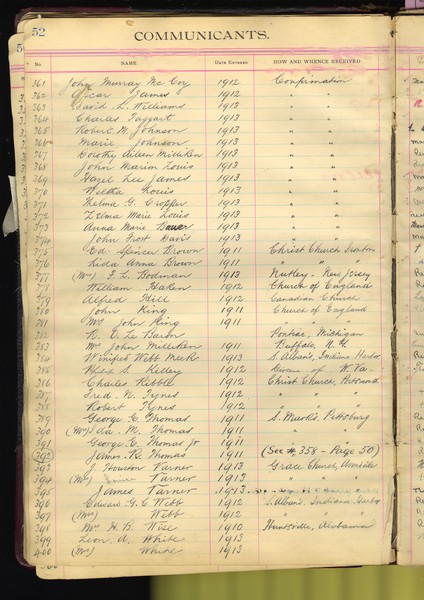 52
COMMUNICANTS.
No. NAME DATE ENTERED HOW AND WHENCE RECEIVED
361 John Murray McCoy 1912 Confirmation
362 Oscar James 1912 " "
363 David L. Williams 1913 " "
364 Charles Taggart 1913 " "
365 Robert N. Johnson 1913 " "
366 Marie Johnson 1913 " "
367 Dorothy Aileen Milliken 1913 " "
368 John Marion Louis 1913 " "
369 Hazel Lee James 1913 " "
370 Louis 1913 " "
371 Thelma G. Cropper 1913 " "
372 Zelma Marie Louis 1913 " "
373 Anna Marie Bauer 1913 " "
374 John Frost Davis 1913 " "
375 Ed. Spencer Brown 1911 Christ Church Ironton
376 Lida Anna Brown 1911 " " "
377 (Mrs) F. L. Bodman 1913 Nutley - New Jersey
378 William Haken 1912 Church of England
379 Alfred Hill 1912 Canadian Church
380 John King 1911 Church of England
381 Mrs John King 1911 " " "
382 R. E. Le Baron Pontiac, Michigan
383 Mr John Milliken 1911 Buffalo, N.Y.
384 Winifred Webb Meek 1913 S. Albans, Indiana Harbor
385 S. Kelley 1912 Diocese of W. Va.
386 Charles Kibble 1912 Christ Church,
387 Fred. N. Tynes 1912 " "
388 Robert Tynes 1912 " "
389 George C. Thomas 1911 S. Mark's,
390 (Mrs) Ida M. Thomas 1911 " "
391 George C. Thomas Jr 1911 " "
392 James R. Thomas 1911 (See # 358 - Page 50)
393 J. Houston Turner 1913 Grace Church,
394 (Mrs) Turner 1913 " " "
395 James Turner 1913
396 Edward G. C. Webb 1912 S. Albans, Indiana Harbor
397 (Mrs) Webb 1912 " " "
398 Mrs H. B. Wise 1910 Huntsville, Alabama
399 Leon A. White 1913
400 (Mrs) White 1913